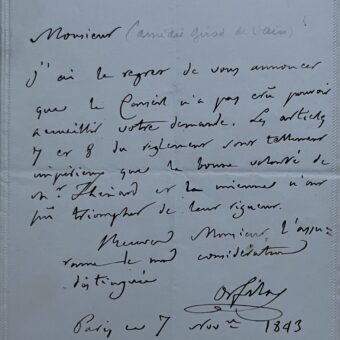 Monsieur (amédée Girod de l'Ain)
J'ai le regret de vous annoncer
que le Conseil n'a pas cru pouvoir
accueillir votre demande. Les articles
7 et 8 du règlement sont tellement
impérieux que la bonne volonté de
Mr. Thénard et la mienne n'ont
pu triompher de leur rigueur.
Recevez Monsieur l'assu-
rance de ma considération
distinguée
Orfila
Paris ce 7 Novre 1843